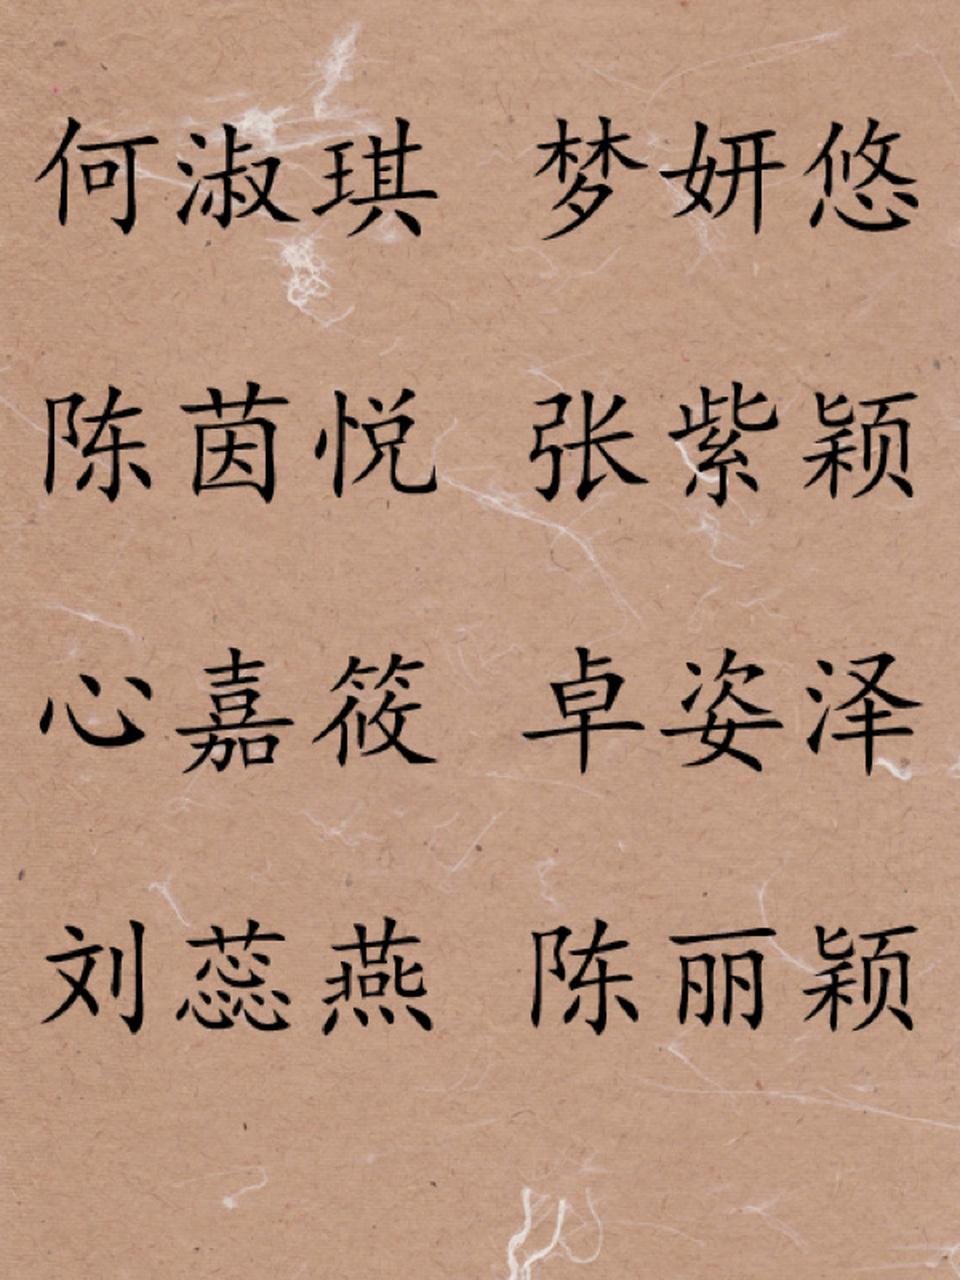 何淑琪 梦妍悠
陈茵悦 张紫颖
心嘉筱 卓姿泽
刘蕊燕 陈丽颖